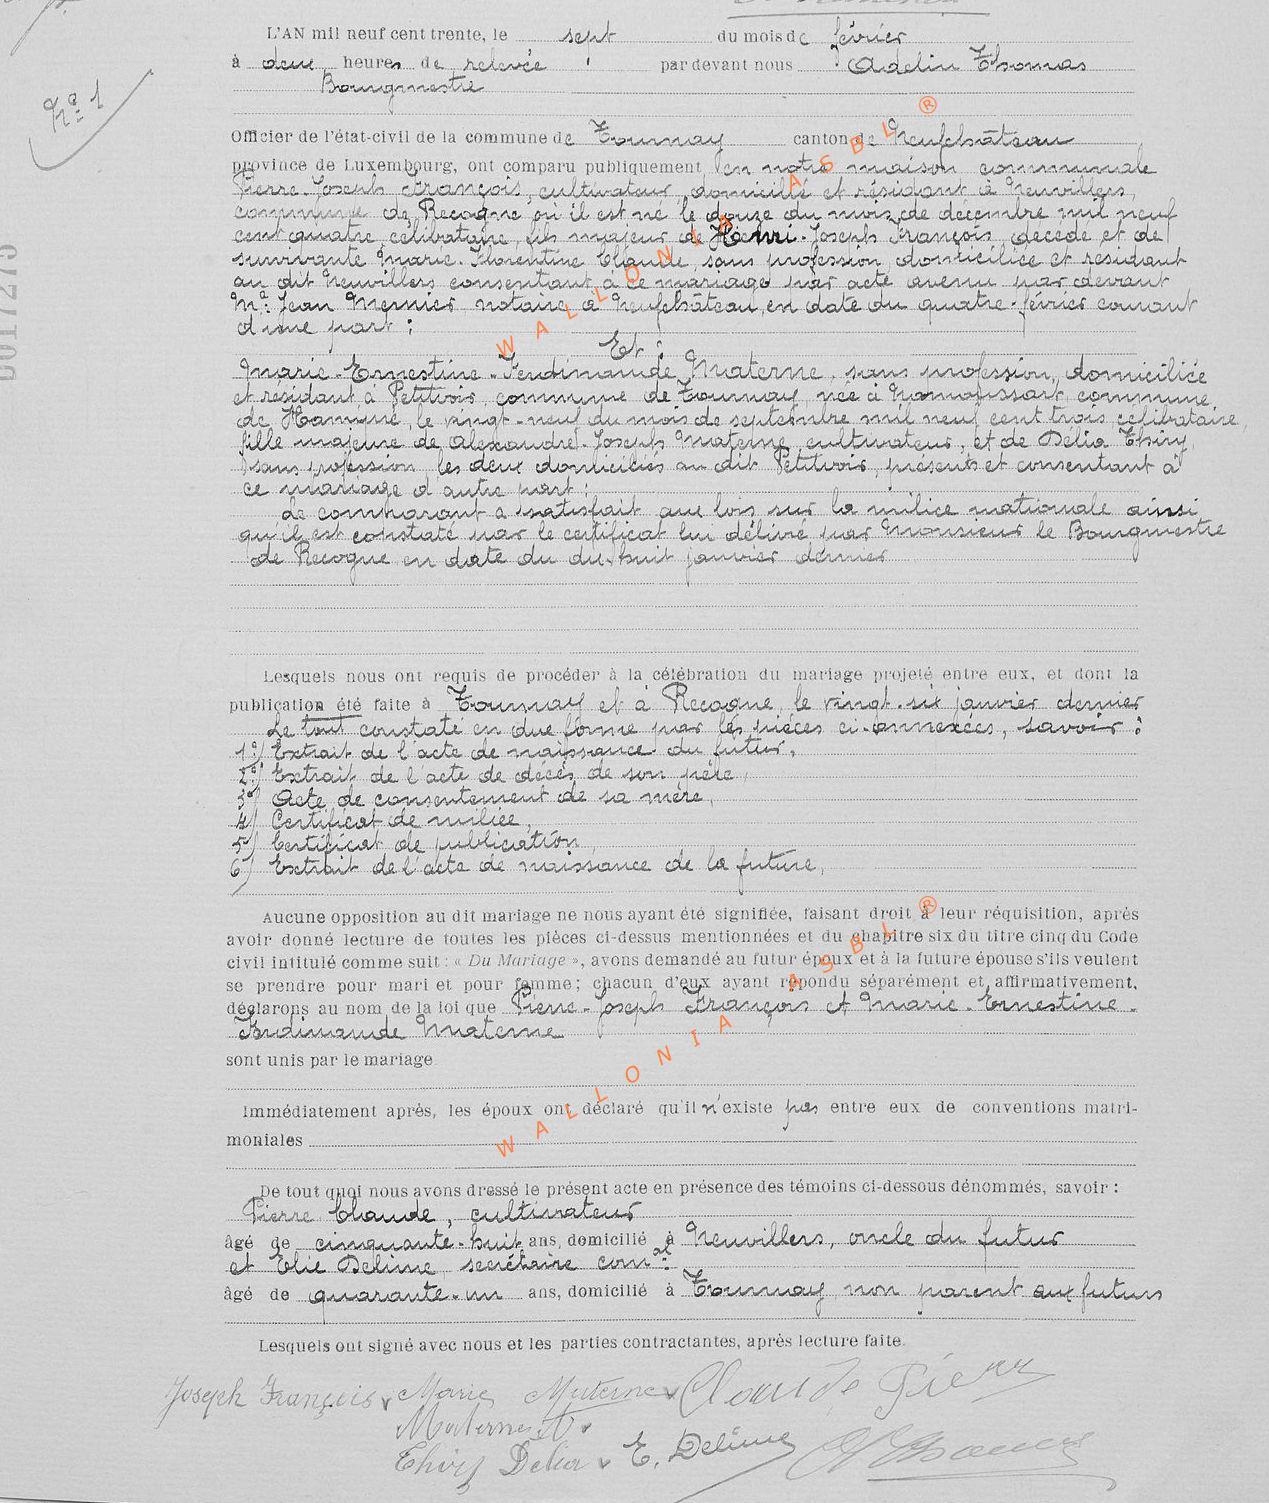 Nº 1
L'AN mil neuf cent trente, le sept du mois de février
à deux heures de relevée par devant nous Adelin Thomas
Bourgmestre
Officier de l'état-civil de la commune de Tournay canton de Neufchâteau
province de Luxembourg, ont comparu publiquement en notre maison communale
Pierre-Joseph François, cultivateur, domicilié et résidant à Neuvillers,
commune de Recogne où il est né le douze du mois de décembre mil neuf
cent quatre, célibataire, fils majeur de Henri-Joseph François, décédé et de
survivante Marie-Florentine Claude, sans profession, domiciliée et résidant
au dit Neuvillers consentant à ce mariage par acte avenu par devant
Me Jean Mernier notaire à Neufchâteau, en date du quatre février courant
d'une part ;
Et :
Marie-Ernestine-Ferdinande Materne, sans profession, domiciliée
et résidant à Petitvoir, commune de Tournay, née à Namoussart, commune
de Hamipré, le vingt-neuf du mois de septembre mil neuf cent trois, célibataire,
fille majeure de Alexandre-Joseph Materne, cultivateur, et de Délia Thiry,
sans profession, les deux domiciliés au dit Petitvoir, présents et consentant à
ce mariage d'autre part ;
Le comparant a satisfait aux lois sur la milice nationale ainsi
qu'il est constaté par le certificat lui délivré par Monsieur le Bourgmestre
de Recogne en date du dix-huit janvier dernier
Lesquels nous ont requis de procéder à la célébration du mariage projeté entre eux, et dont la
publication été faite à Tournay et à Recogne, le vingt-six janvier dernier
Le tout constaté en due forme par les pièces ci-annexées, savoir :
1º) Extrait de l'acte de naissance du futur,
2º) Extrait de l'acte de décès de son père,
3º) Acte de consentement de sa mère,
4) Certificat de milice,
5) Certificat de publication,
6) Extrait de l'acte de naissance de la future,
Aucune opposition au dit mariage ne nous ayant été signifiée, faisant droit à leur réquisition, après
avoir donné lecture de toutes les pièces ci-dessus mentionnées et du chapitre six du titre cinq du Code
civil intitulé comme suit : « Du Mariage », avons demandé au futur époux et à la future épouse s'ils veulent
se prendre pour mari et pour femme ; chacun d'eux ayant répondu séparément et affirmativement,
déclarons au nom de la loi que Pierre-Joseph François et Marie-Ernestine-
Ferdinande Materne
sont unis par le mariage
Immédiatement après, les époux ont déclaré qu'il n'existe pas entre eux de conventions matri-
moniales
De tout quoi nous avons dressé le présent acte en présence des témoins ci-dessous dénommés, savoir :
Pierre Claude, cultivateur
âgé de cinquante-huit ans, domicilié à Neuvillers, oncle du futur
et Elie Delime secrétaire comal
âgé de quarante-un ans, domicilié à Tournay non parent aux futurs
Lesquels ont signé avec nous et les parties contractantes, après lecture faite.
Joseph François Marie Materne Claude Pierre
Materne A.
Thiry Délia E. Delime
WALLONIA ASBL ®
WALLONIA ASBL ®